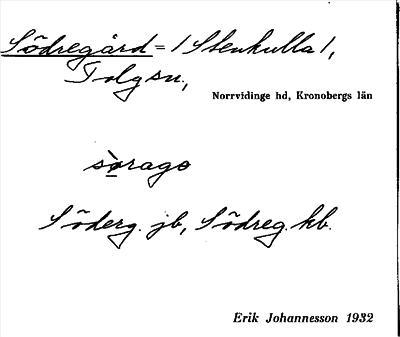 Södregård = / Stenkulla /,
Tolg sn.,
Norrvidinge hd, Kronobergs län
sò̱rago
Söderg. jb, Södreg. kb.
Erik Johannesson 1932